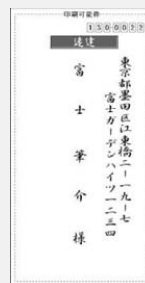 印刷可能枠
1300022
速達
東京都墨田区江東橋二ー一九ー七
富士ガーデンハイツ一二三四
富士筆介様